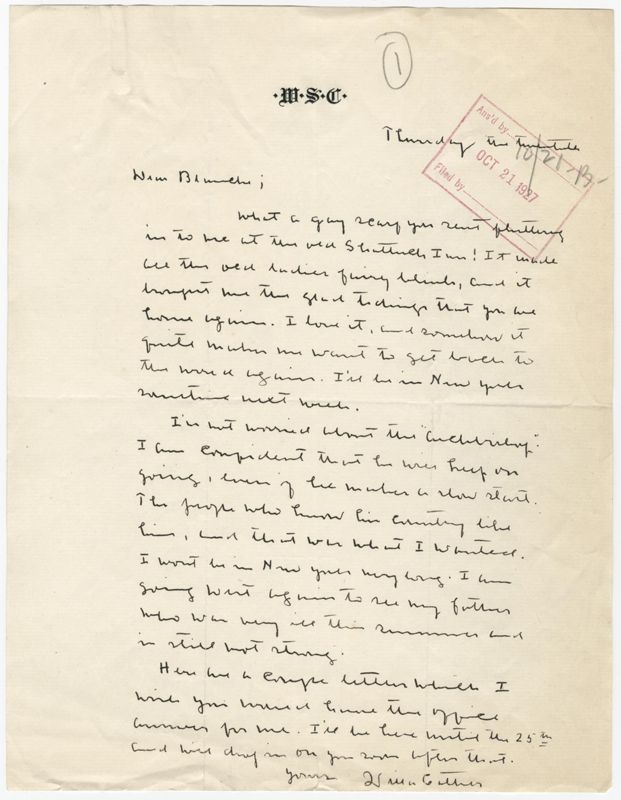 1
·W·S·C·
Thursday the twentieth
Ans'd by 10/21 B-
OCT 21 1927
Filed by
Dear Blanche;
What a gay scarf you sent fluttering
in to me at the old Shattuck Inn! It made
all the old ladies fairy blink, and it
brought me the glad tidings that you are
home again. I love it, and somehow it
quite makes me want to get back to
the world again. I'll be in New York
sometime next week.
I'm not worried about the "Archbishop".
I am confident that he will keep on
going, even if he makes a slow start.
The people who know his country like
him, and that was what I wanted.
I wont be in New York very long. I am
going West again to see my father
who was very ill this summer and
is still not strong.
Here are a couple letters which I
wish you would have the office
answer for me. I'll be here until the 25th
and will drop in on you soon after that.
Yours Willa Cather